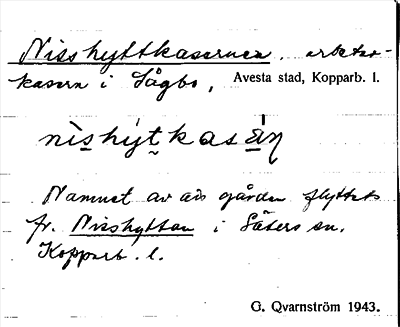 Nisshyttkasernen, arbetar-
kasern i Sågbo, Avesta stad, Kopparb. l.
nìshýtkasä̀ɳ
Namnet av att gården flyttats
fr. Nisshyttan i Säters sn.
Kopparb. l.
G. Qvarnström 1943.